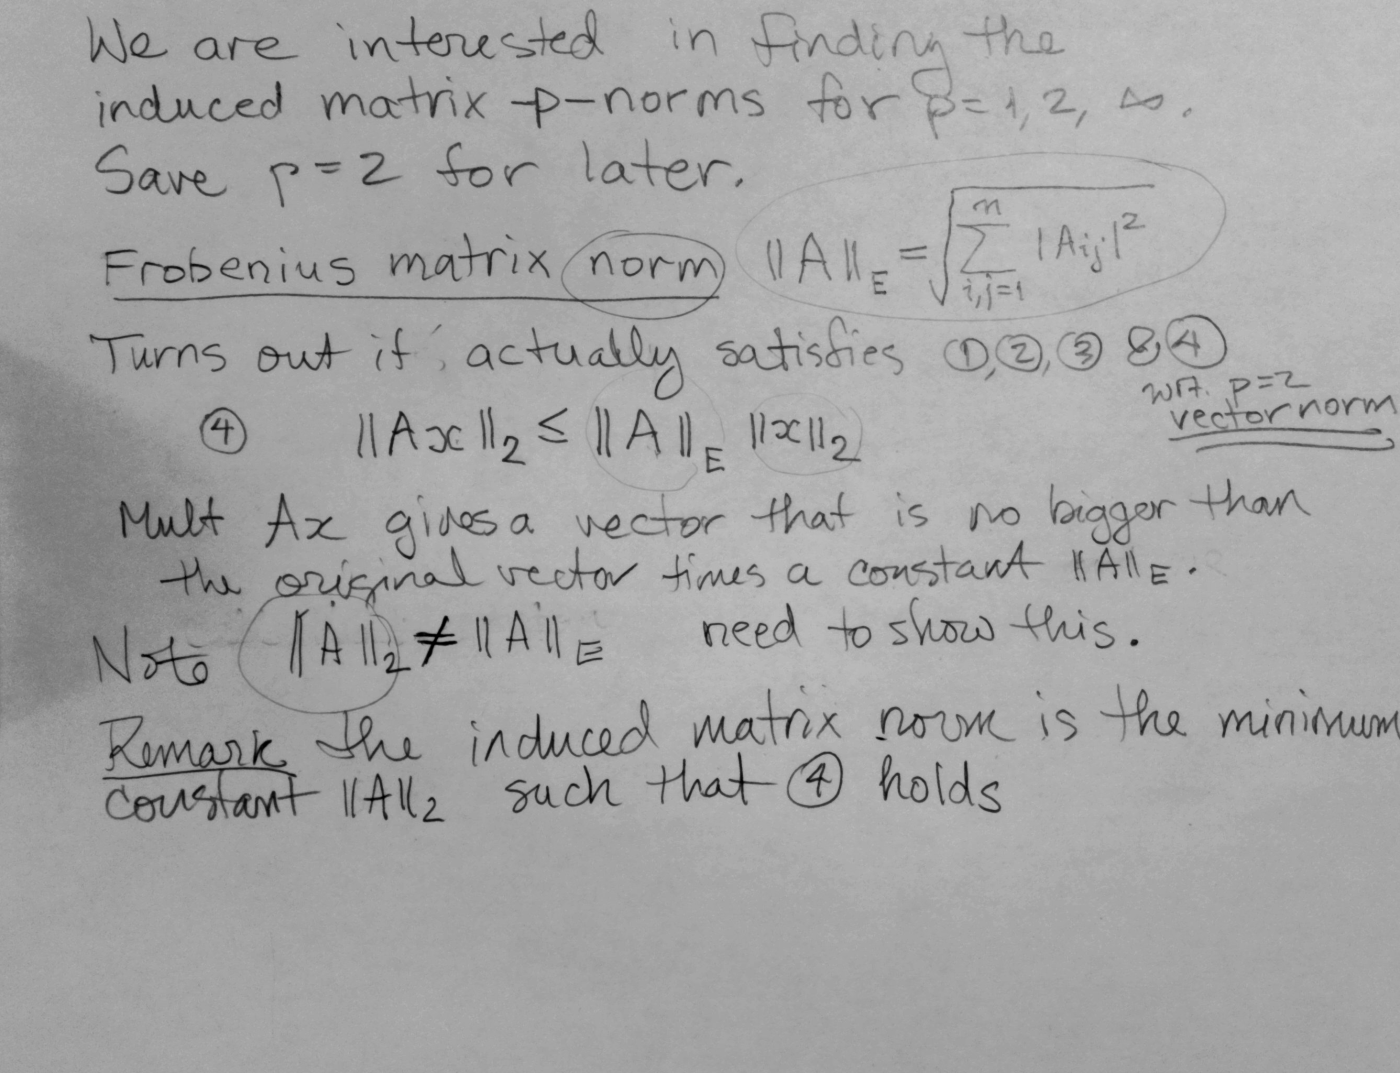 We are interested in finding the
induced matrix -p-norms for p=1, 2, ∞.
Save p=2 for later.
Frobenius matrix norm ||A||_E = √(∑_{i,j=1}^{n} |A_{ij}|²)
Turns out it actually satisfies ①,②,③ & ④
wrt. p=2
vector norm
④ ||Ax||₂ ≤ ||A||_E ||x||₂
Mult Ax gives a vector that is no bigger than
the original vector times a constant ||A||_E.
Note ||A||₂ ≠ ||A||_E need to show this.
Remark The induced matrix norm is the minimum
constant ||A||₂ such that ④ holds